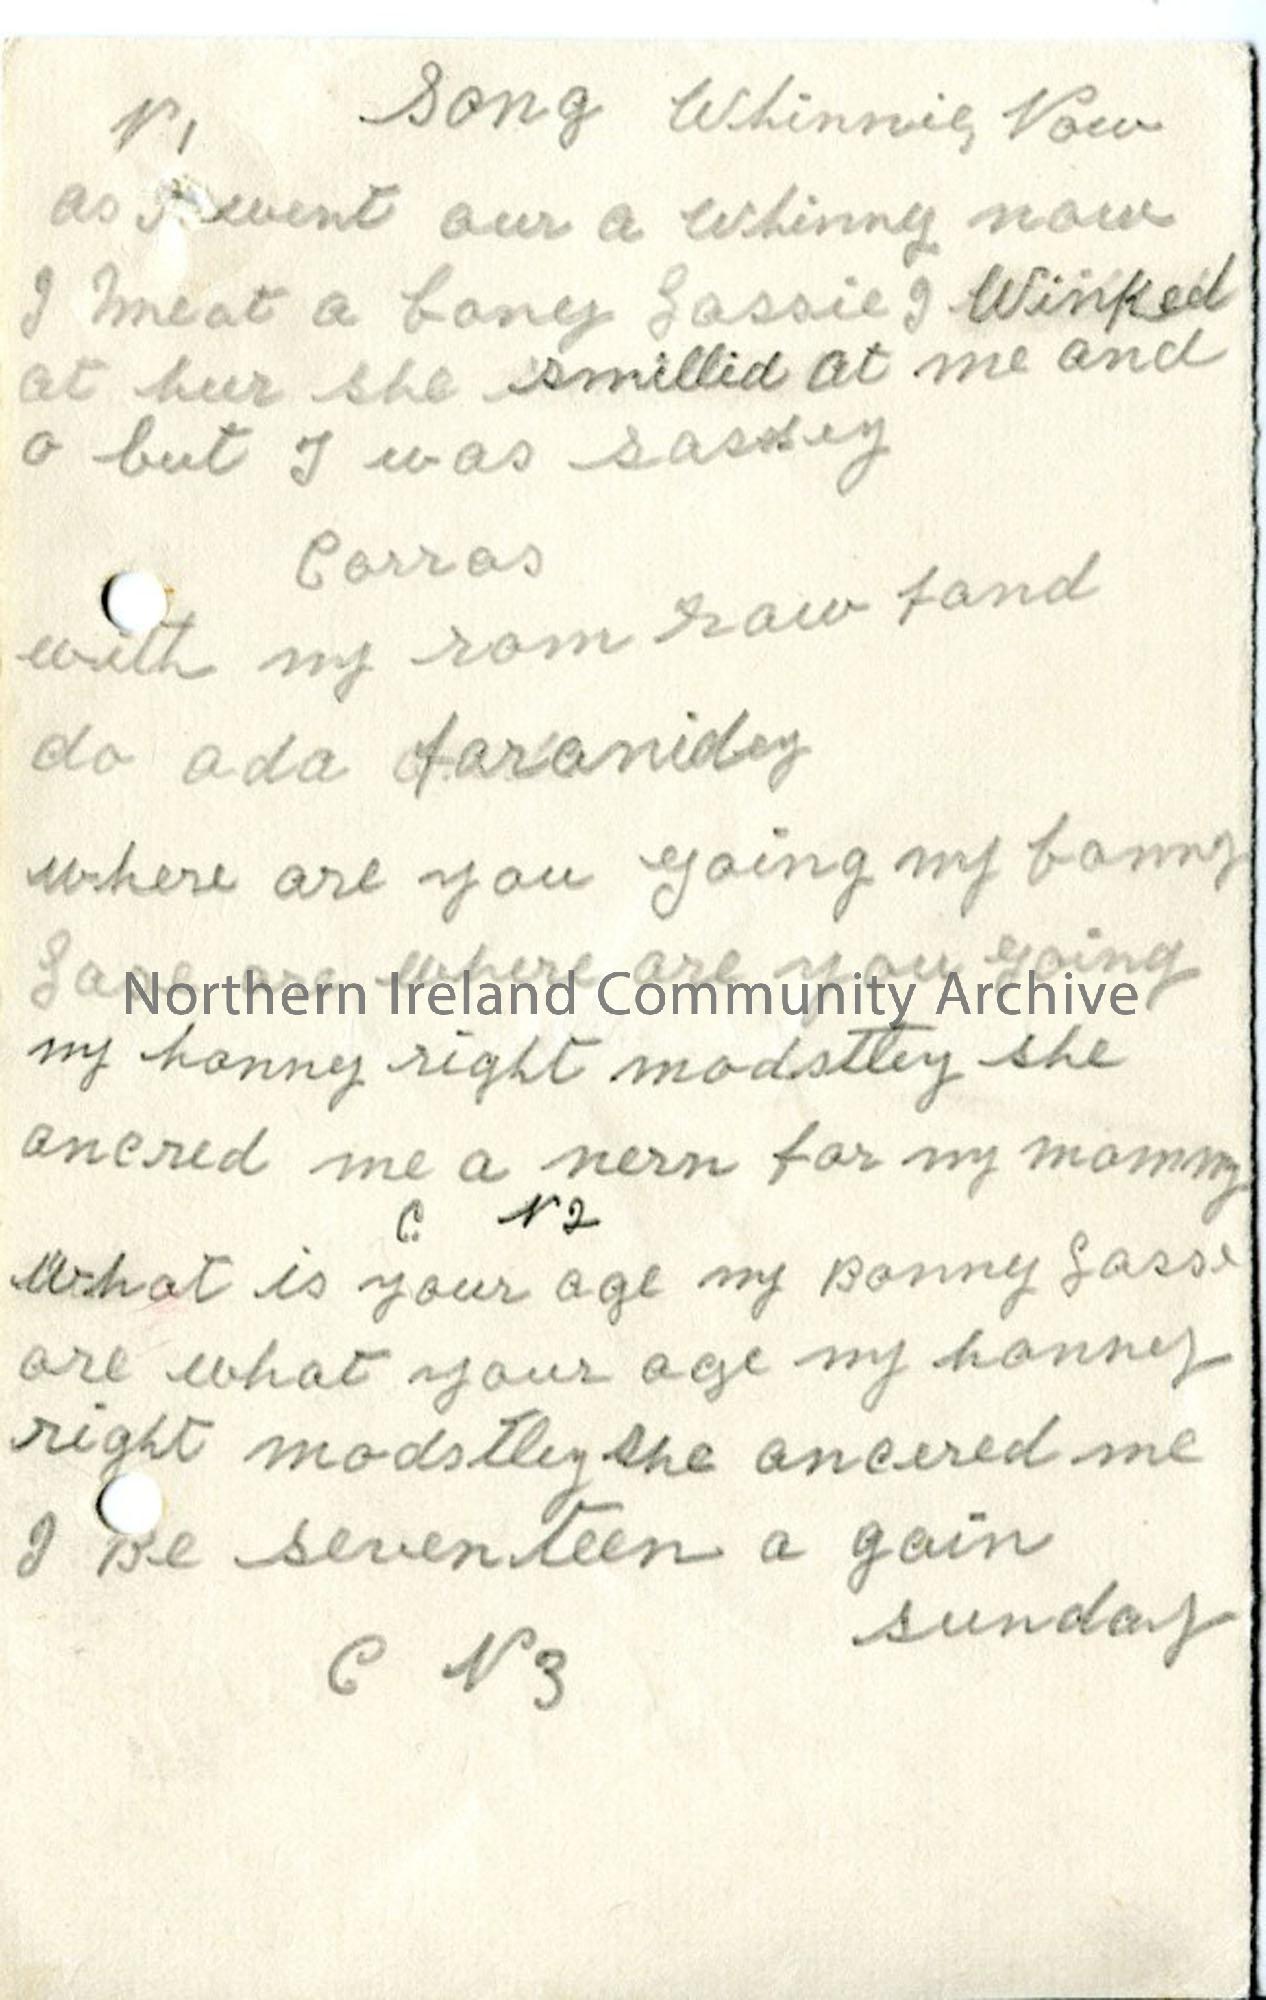 V1 Song Whinnie, Now
as I went our a Whinny now
I meat a boney Lassie I Winked
at hur she smillid at me and
o but I was sassey
Corras
with my rom raw fand
do ada faranidey
where are you going my bonny
where are you going
Northern Ireland Community Archive
my honney right modsttey she
ancred me a nern for my mommy
C. V2
What is your age my Bonny Lassi
are what your age my honney
right modstley she ancered me
I Be seventeen a gain
sunday
C V3